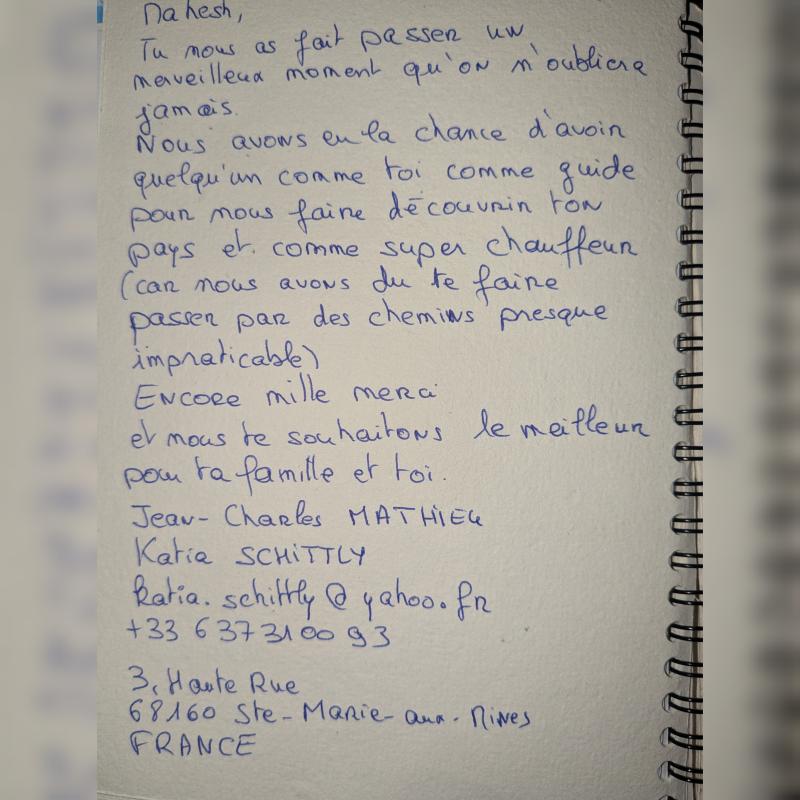 Mahesh,
Tu nous as fait passer un
merveilleux moment qu'on n'oubliera
jamais.
Nous avons eu la chance d'avoir
quelqu'un comme toi comme guide
pour nous faire découvrir ton
pays et comme super chauffeur
(car nous avons du te faire
passer par des chemins presque
impraticable)
ENCORE mille merci
et nous te souhaitons le meilleur
pour ta famille et toi.
Jean-Charles MATHIEU
Katia SCHITTLY
katia.schittly@yahoo.fr
+33 6 37 31 00 93
3, Haute Rue
68160 Ste-Marie-aux-Mines
FRANCE